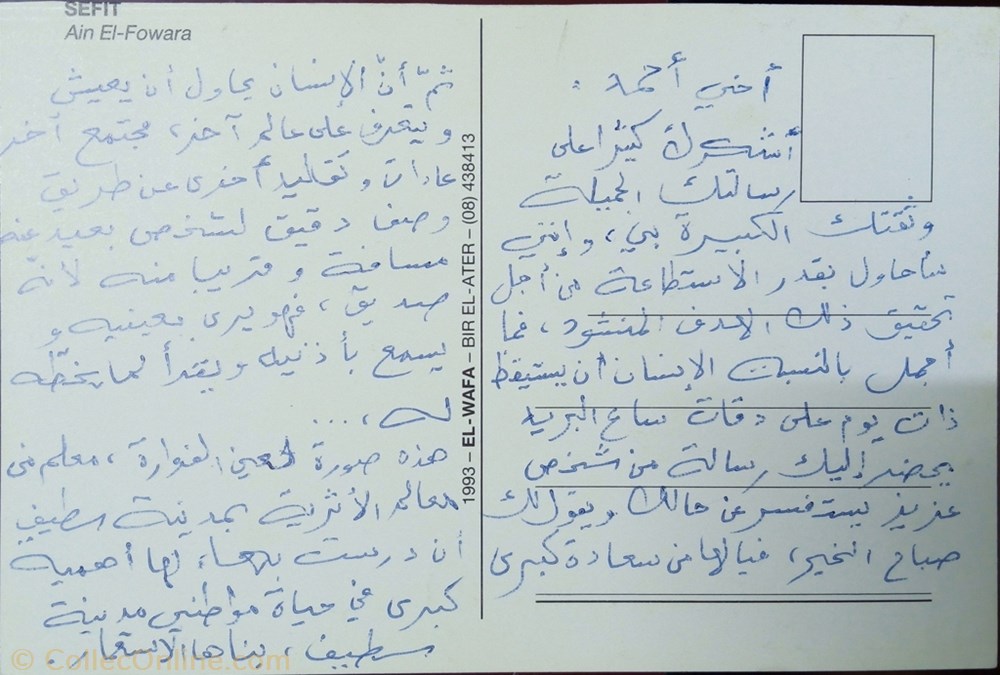 SEFIT
Ain El-Fowara
أخي أحمد :
أشكرك كثيرا على
رسالتك الجميلة
وثقتك الكبيرة بي، وإنني
سأحاول بقدر الاستطاعة من أجل
تحقيق ذلك الهدف المنشود، فما
أجمل بالنسبة الإنسان أن يستيقظ
ذات يوم على دقات ساع البريد
يحضر إليك رسالة من شخص
عزيز يستفسر عن حالك ويقول لك
صباح الخير، فيالها من سعادة كبرى
ثمّ أنّ الإنسان يحاول أن يعيش
ويتعرف على عالم آخر، مجتمع آخر
عادات وتقاليد أخرى عن طريق
وصف دقيق لشخص بعيد عنه
مسافة وقريبا منه لأنّه
صديق، فهو يرى بعينيه و
يسمع بأذنيه ويقرأ لما يخطّه
له، ...
هذه صورة لعين الفوارة، معلم من
معالم الأثرية بمدينة سطيف
أن درست بها، لها أهمية
كبرى في حياة مواطني مدينة
سطيف، بناها الاستعمار.
1993 – EL-WAFA – BIR EL-ATER – (08) 438413
© CollecOnline.com